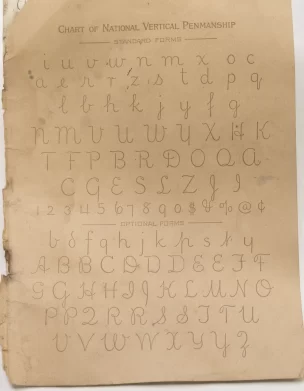 CHART OF NATIONAL VERTICAL PENMANSHIP
STANDARD FORMS
i u v w n m x o c
a e r r z s t d p q
l b h k j y f g
n m v u w y x H K
T F P B R D O Q A
C G E S L Z J I
1 2 3 4 5 6 7 8 9 0 $ & % @ ¢
OPTIONAL FORMS
b d f q h j k p s t y
A B B C D D E E F F
G G H H I J K L M N O
P P Q R R S S T T U
U V V W W X Y Y Z